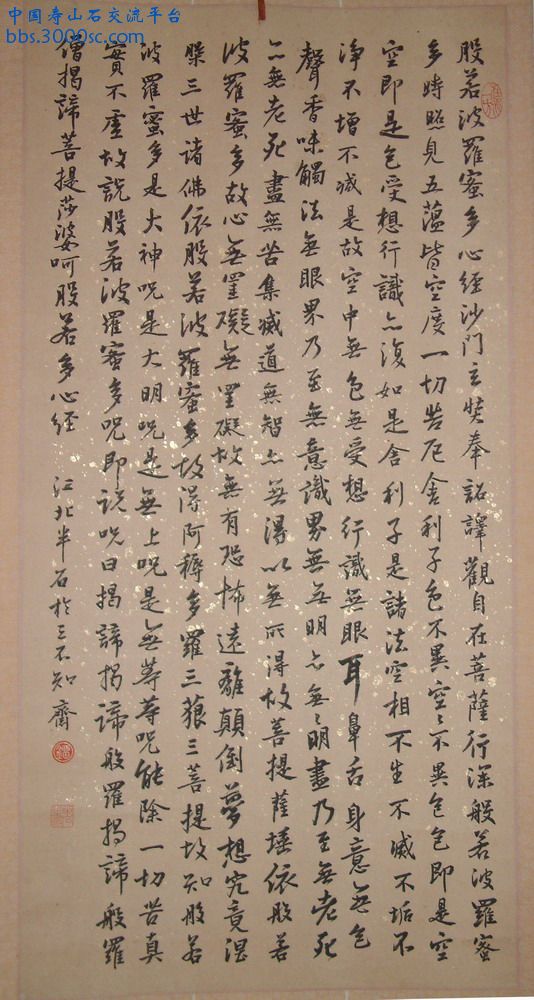 中国寿山石交流平台
bbs.3000sc.com
股若波羅蜜多心經沙門玄奘奉詔譯觀自在菩薩行深般若波羅蜜
多時照見五蘊皆空度一切苦厄舍利子色不異空空不異色色即是空
空即是色受想行識亦復如是舍利子是諸法空相不生不滅不垢不
淨不增不滅是故空中無色無受想行識無眼耳鼻舌身意無色
聲香味觸法無眼界乃至無意識界無無明亦無無明盡乃至無老死
亦無老死盡無苦集滅道無智亦無得以無所得故菩提薩埵依般若
波羅蜜多故心無罣礙無罣礙故無有恐怖遠離顛倒夢想究竟涅
槃三世諸佛依股若波羅蜜多故得阿耨多羅三藐三菩提故知般若
波羅蜜多是大神咒是大明咒是無上咒是無等等咒能除一切苦真
實不虛故說股若波羅蜜多咒即說咒曰揭諦揭諦般羅揭諦般羅
僧揭諦菩提莎婆呵股若多心經
江北半石於三不知齋